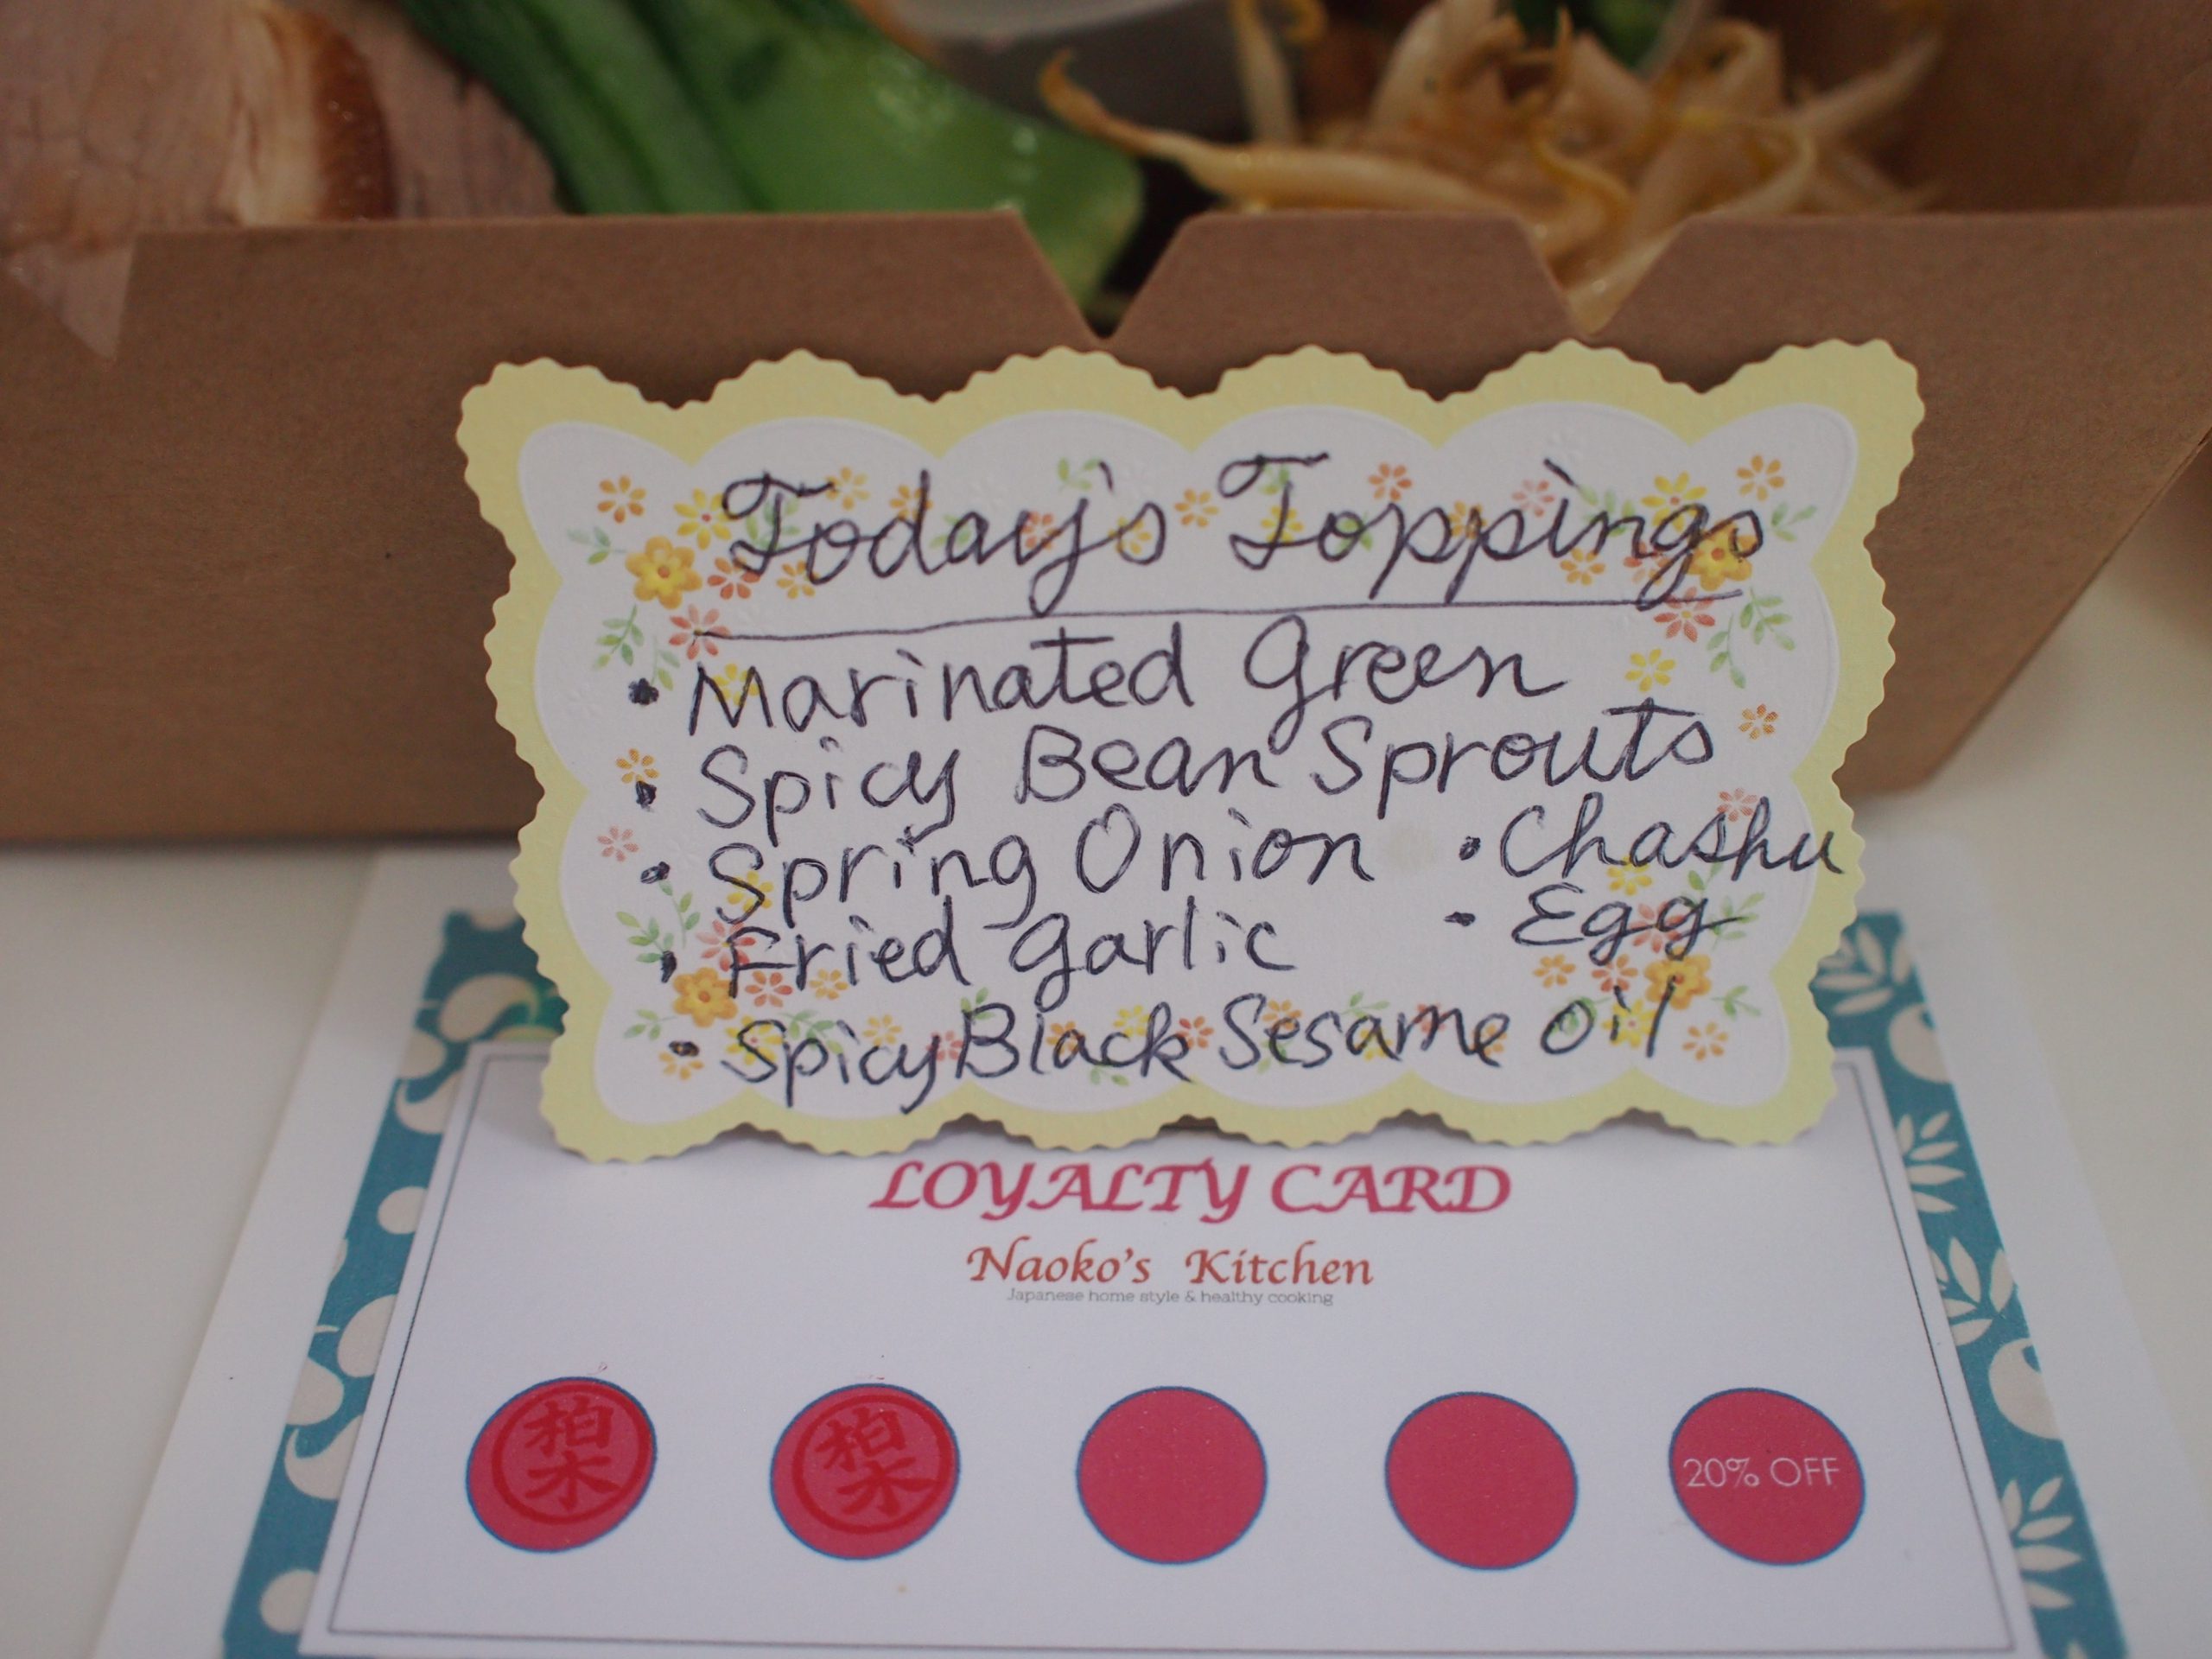 Today's Toppings
• Marinated Green
• Spicy Bean Sprouts
• Spring Onion • Chashu
• Fried Garlic • Egg
• Spicy Black Sesame oil
LOYALTY CARD
Naoko's Kitchen
Japanese home style & healthy cooking
柏木 柏木 20% OFF